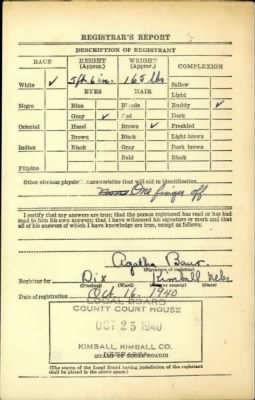 REGISTRAR'S REPORT
DESCRIPTION OF REGISTRANT
RACE HEIGHT (Approx.) WEIGHT (Approx.) COMPLEXION
White ✓ 5 ft 6 in. 165 lbs. Sallow
EYES HAIR Light
Negro Blue Blonde Ruddy ✓
Gray ✓ Red Dark
Oriental Hazel Brown ✓ Freckled
Brown Black Light brown
Indian Black Gray Dark brown
Bald Black
Filipino
Other obvious physical characteristics that will aid in identification
One finger off
I certify that my answers are true; that the person registered has read or has had
read to him his own answers; that I have witnessed his signature or mark and that
all of his answers of which I have knowledge are true, except as follows:
Agatha Baur
(Signature of registrar)
Registrar for Dix Kimball Nebr
(Precinct) (Ward) (City or county) (State)
Date of registration Oct 16 1940
LOCAL BOARD
COUNTY COURT HOUSE
OCT 25 1940
KIMBALL, KIMBALL CO.
NEBRASKA
(STAMP OF LOCAL BOARD)
(The stamp of the Local Board having jurisdiction of the registrant
shall be placed in the above space.)